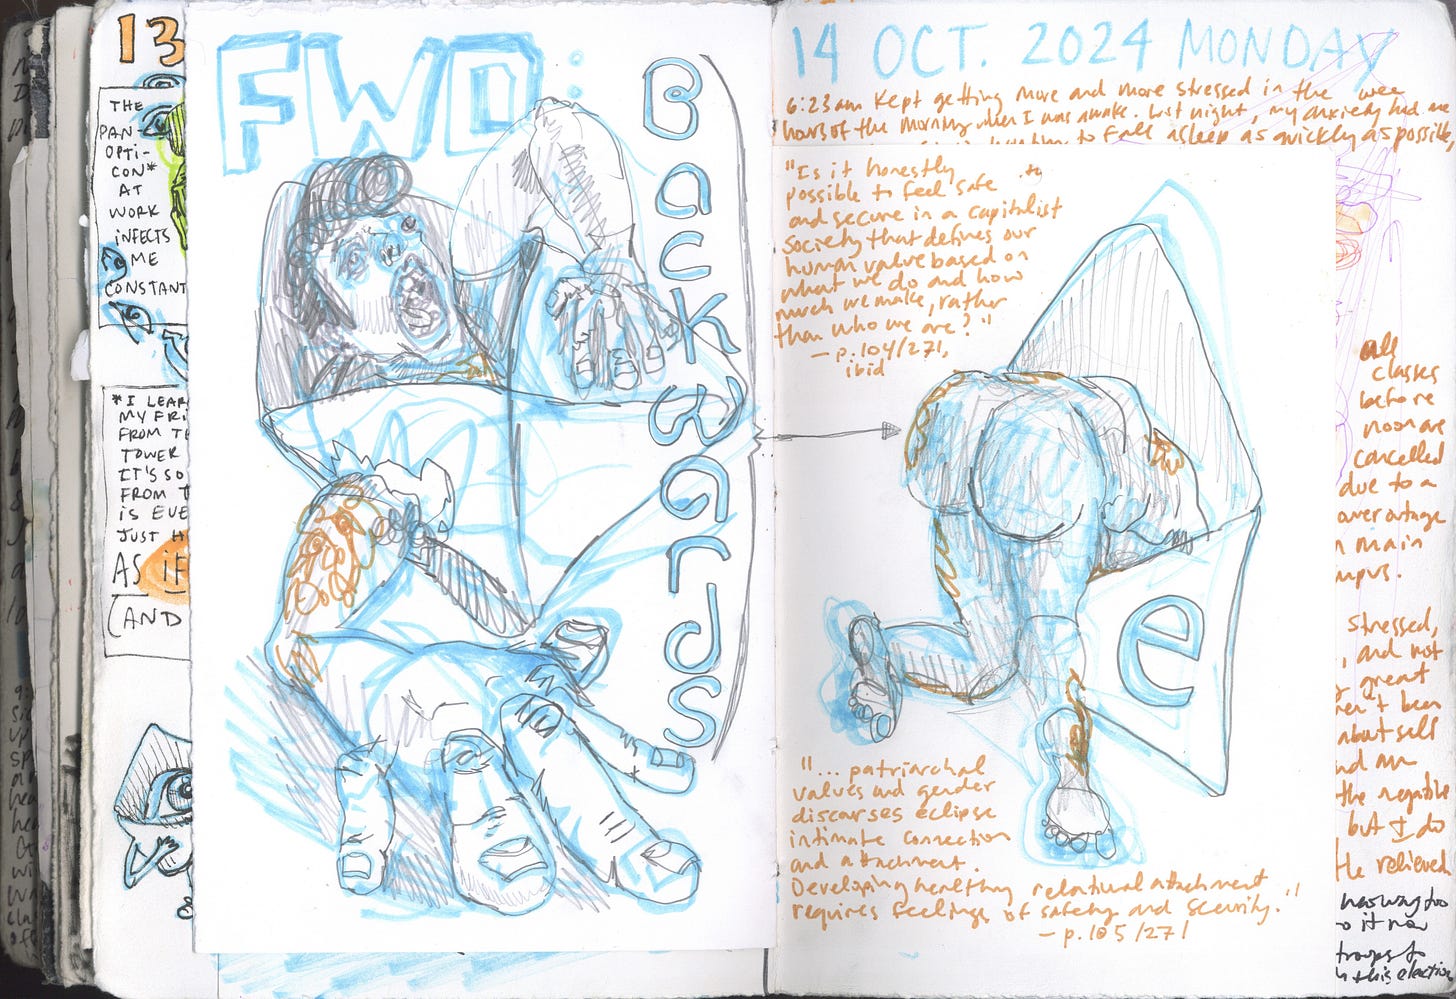 13
THE
PAN-
OPTI-
CON*
AT
WORK
iNFECTS
ME
CONSTANT
*I LEAR
MY FRi
FROM TH
TOWER
IT'S SO
FROM T
IS EVE
JUST H
AS iF
(AND
FWD:
Backwards
14 OCT. 2024 MONDAY
6:23am Kept getting more and more stressed in the wee
hours of the morning when I was awake. Last night, my anxiety had me
to fall asleep as quickly as possible,
"Is it honestly
possible to feel safe
and secure in a capitalist
society that defines our
human value based on
what we do and how
much we make, rather
than who we are?"
— p.104/271,
ibid
e
"... patriarchal
values and gender
discourses eclipse
intimate connection
and attachment.
Developing healthy relational attachment
requires feelings of safety and security."
— p.105/271
all
classes
before
noon are
cancelled
due to a
power outage
n main
mpus.
stressed,
, and not
great
en't been
about self
nd am
the negative
but I do
tle relieved
how
o it now
troops to
this election